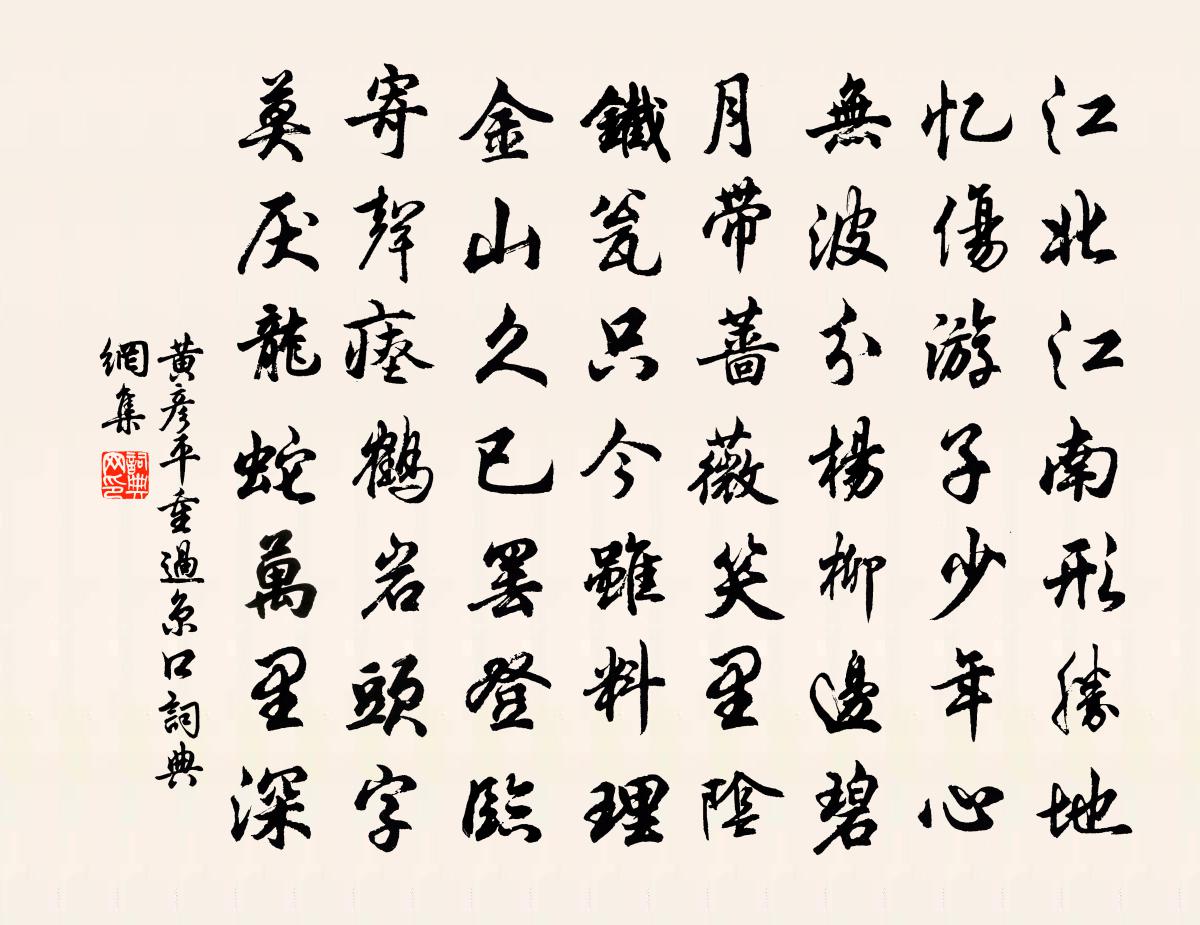 江北江南形勝地
忆傷游子少年心
無波分楊柳邊碧
月带薔薇笑里陰
鐵瓮只今雖料理
金山久已罢登臨
寄聲瘗鶴岩頭字
莫厌龍蛇萬里深
黄彦平重過京口詞典
網集
詞典
网印